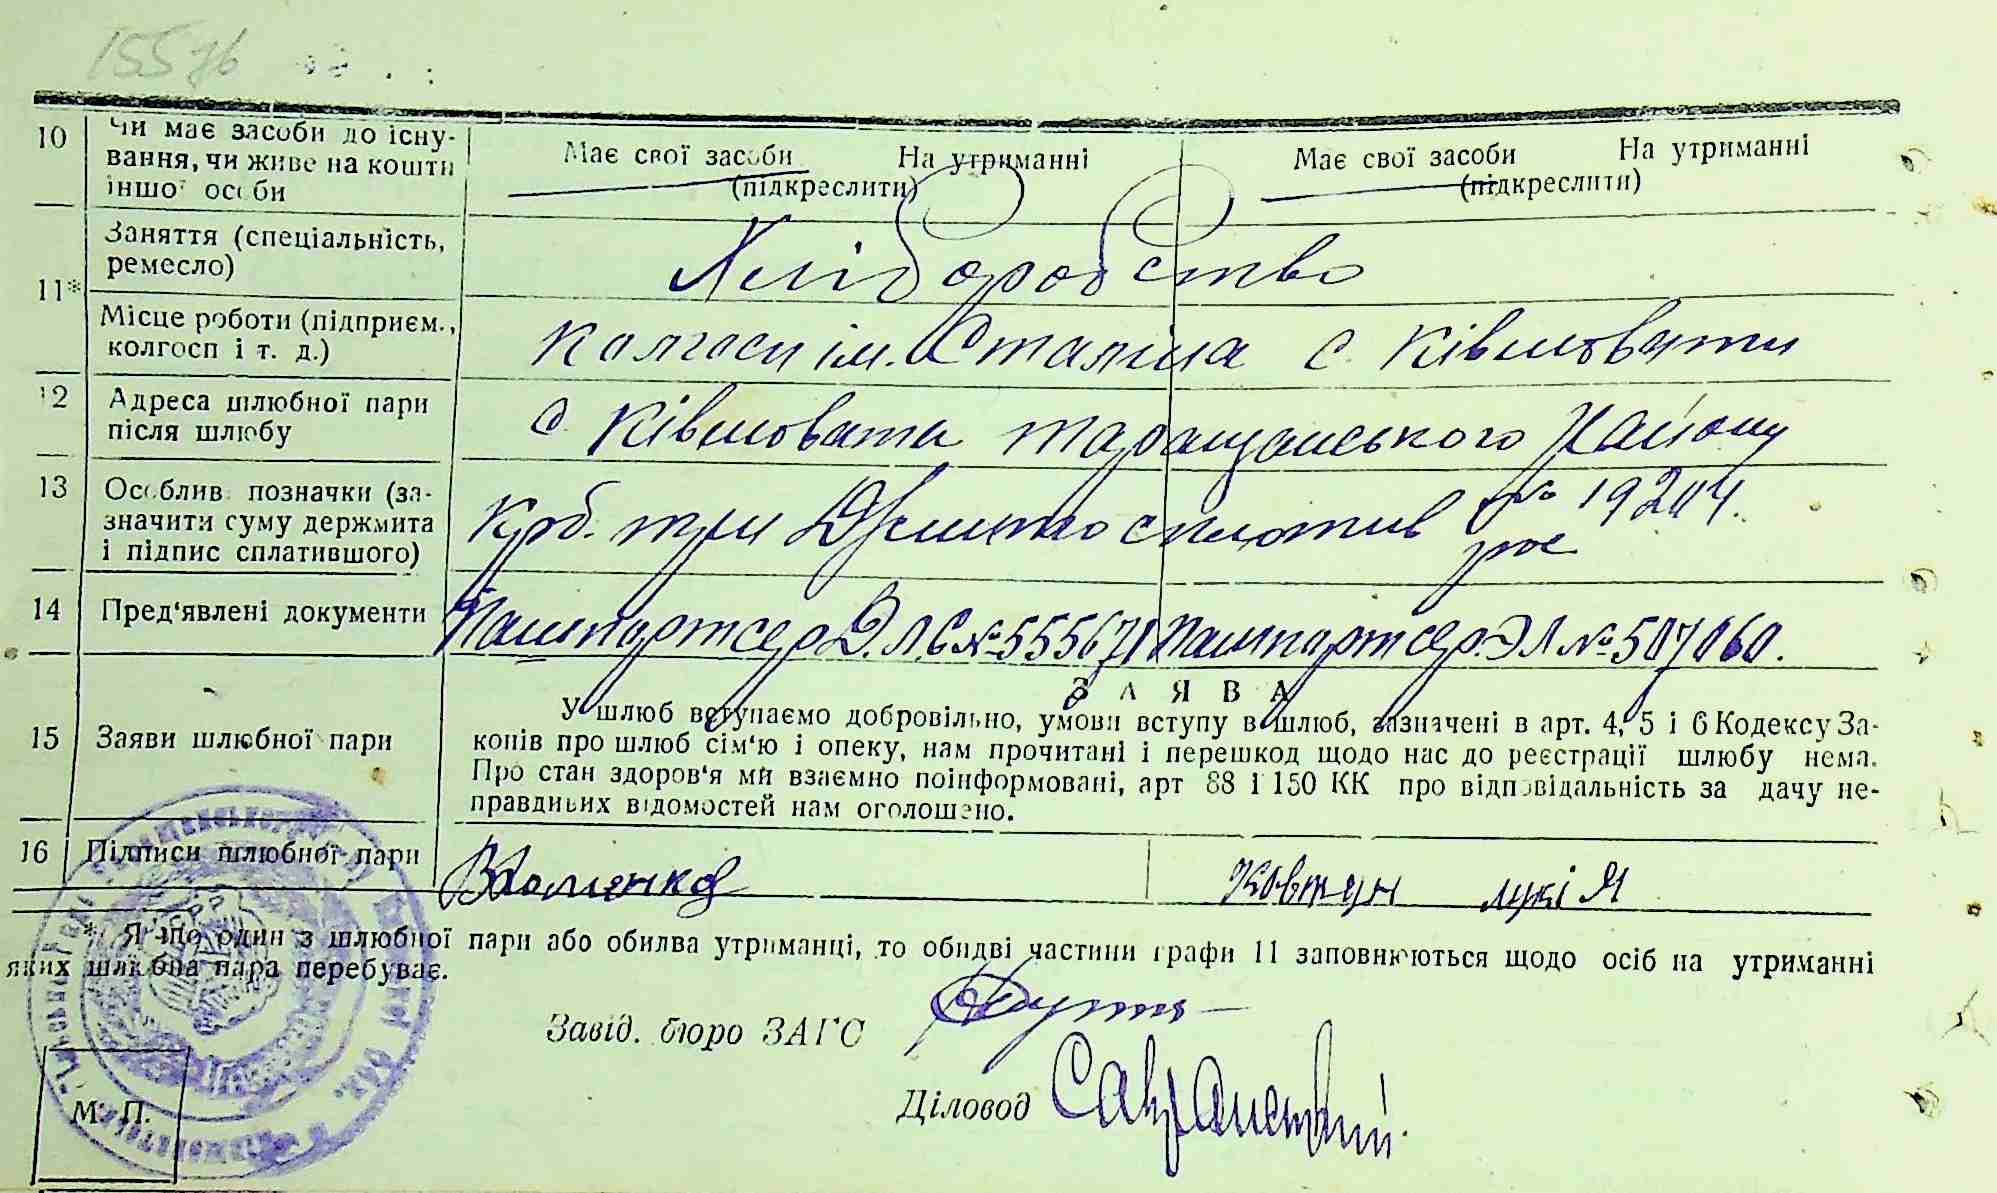 15576
10 Чи має засоби до існу-
вання, чи живе на кошти
іншої особи
Має свої засоби На утриманні
(підкреслити)
Має свої засоби На утриманні
(підкреслити)
11* Заняття (спеціальність,
ремесло)
Хліборобство
Місце роботи (підприєм.,
колгосп і т. д.)
Колгосп ім. Сталіна с. Ківшовати
12 Адреса шлюбної пари
після шлюбу
с. Ківшовати таращанського Району
13 Особлив. позначки (за-
значити суму держмита
і підпис сплатившого)
Крб. три Держмито сплатив
14 Пред'явлені документи
Пашпорт сер Э.Л.С№555671 Пашпорт сер. ЭЛ №507060.
15 Заяви шлюбної пари
ЗАЯВА
У шлюб вступаємо добровільно, умови вступу в шлюб, зазначені в арт. 4, 5 і 6 Кодексу За-
конів про шлюб сім'ю і опеку, нам прочитані і перешкод щодо нас до реєстрації шлюбу нема.
Про стан здоров'я ми взаємно поінформовані, арт 88 і 150 КК про відповідальність за дачу не-
правдивих відомостей нам оголошено.
16 Підписи шлюбної пари
ВХоменко Ковтун лукія
* Якщо один з шлюбної пари або обидва утриманці, то обидві частини графи 11 заповнюються щодо осіб на утриманні
яких шлюбна пара перебуває.
Завід. бюро ЗАГС
Діловод
М. П.